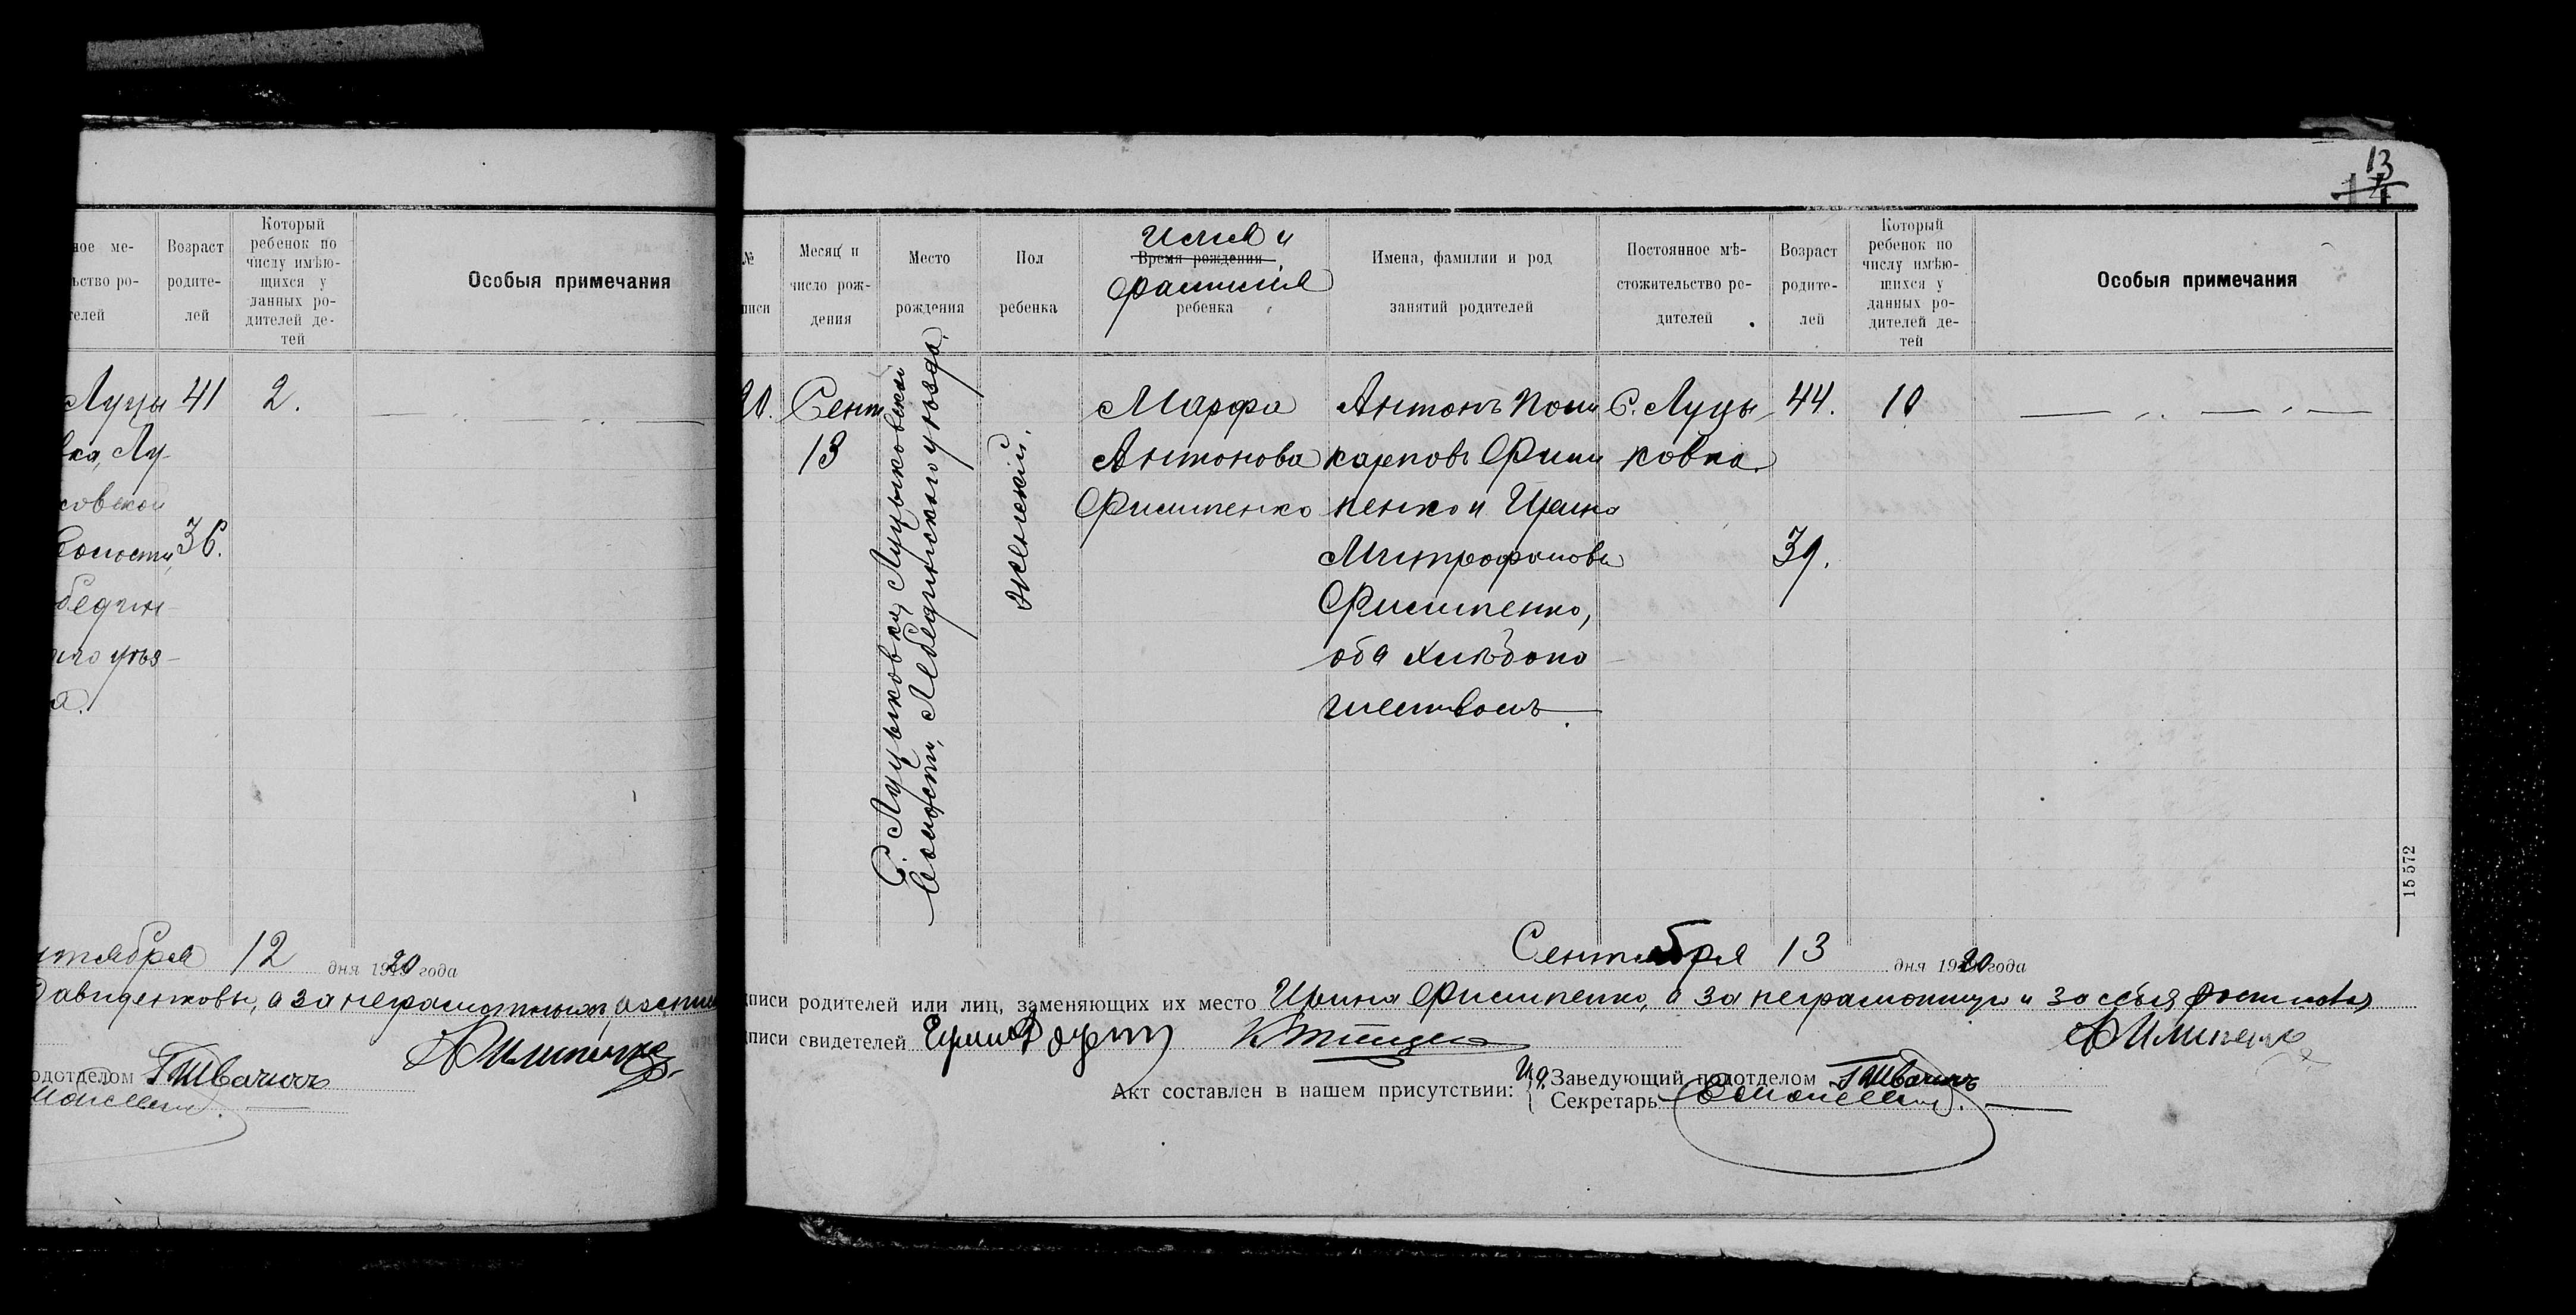 ное ме-
ьство ро-
телей
Возраст
родите-
лей
Который
ребенок по
числу имѣю-
щихся у
данных ро-
дителей де-
тей
Особыя примечания
Луцы
41
2.
вка, Лу-
совской
волости,
36.
бедин-
ого уѣз-
а.
нтября 12 дня 1920 года
Давиденковы, а за неграмотных
одотделом
13
14
№
писи
Месяц и
число рож-
дения
Место
рождения
Пол
ребенка
Имя и
Время рождения
фамилия
ребенка
Имена, фамилии и род
занятий родителей
Постоянное мѣ-
стожительство ро-
дителей
Возраст
родите-
лей
Который
ребенок по
числу имѣю-
щихся у
данных ро-
дителей де-
тей
Особыя примечания
20.
Сент
13
С. Луцыковка, Луцыковской
волости, Лебединского уѣзда.
женский.
Марфа
Антонова
Филипенко
Антонъ Поли
карповъ Фили
пенко и Ирина
Митрофанова
Филипенко,
оба хлѣбопа
шествомъ.
С. Луцы
ковка.
44.
39.
10
15572
Сентября 13 дня 1920 года
писи родителей или лиц, заменяющих их место Ирина Филипенко, а за неграмотную и за себя
писи свидетелей
Акт составлен в нашем присутствии:
И. д. Заведующий подотделом
Секретарь